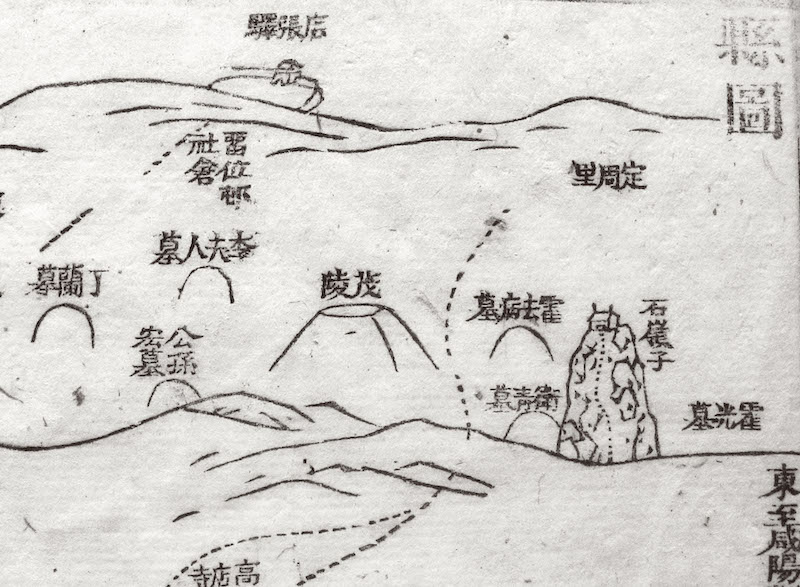 縣圖
店張驛
留位邨
社倉
定周里
李夫人墓
丁蘭墓
茂陵
霍去病墓
石嶺子
公孫
宏墓
衛青墓
霍光墓
東至咸陽
高店寺